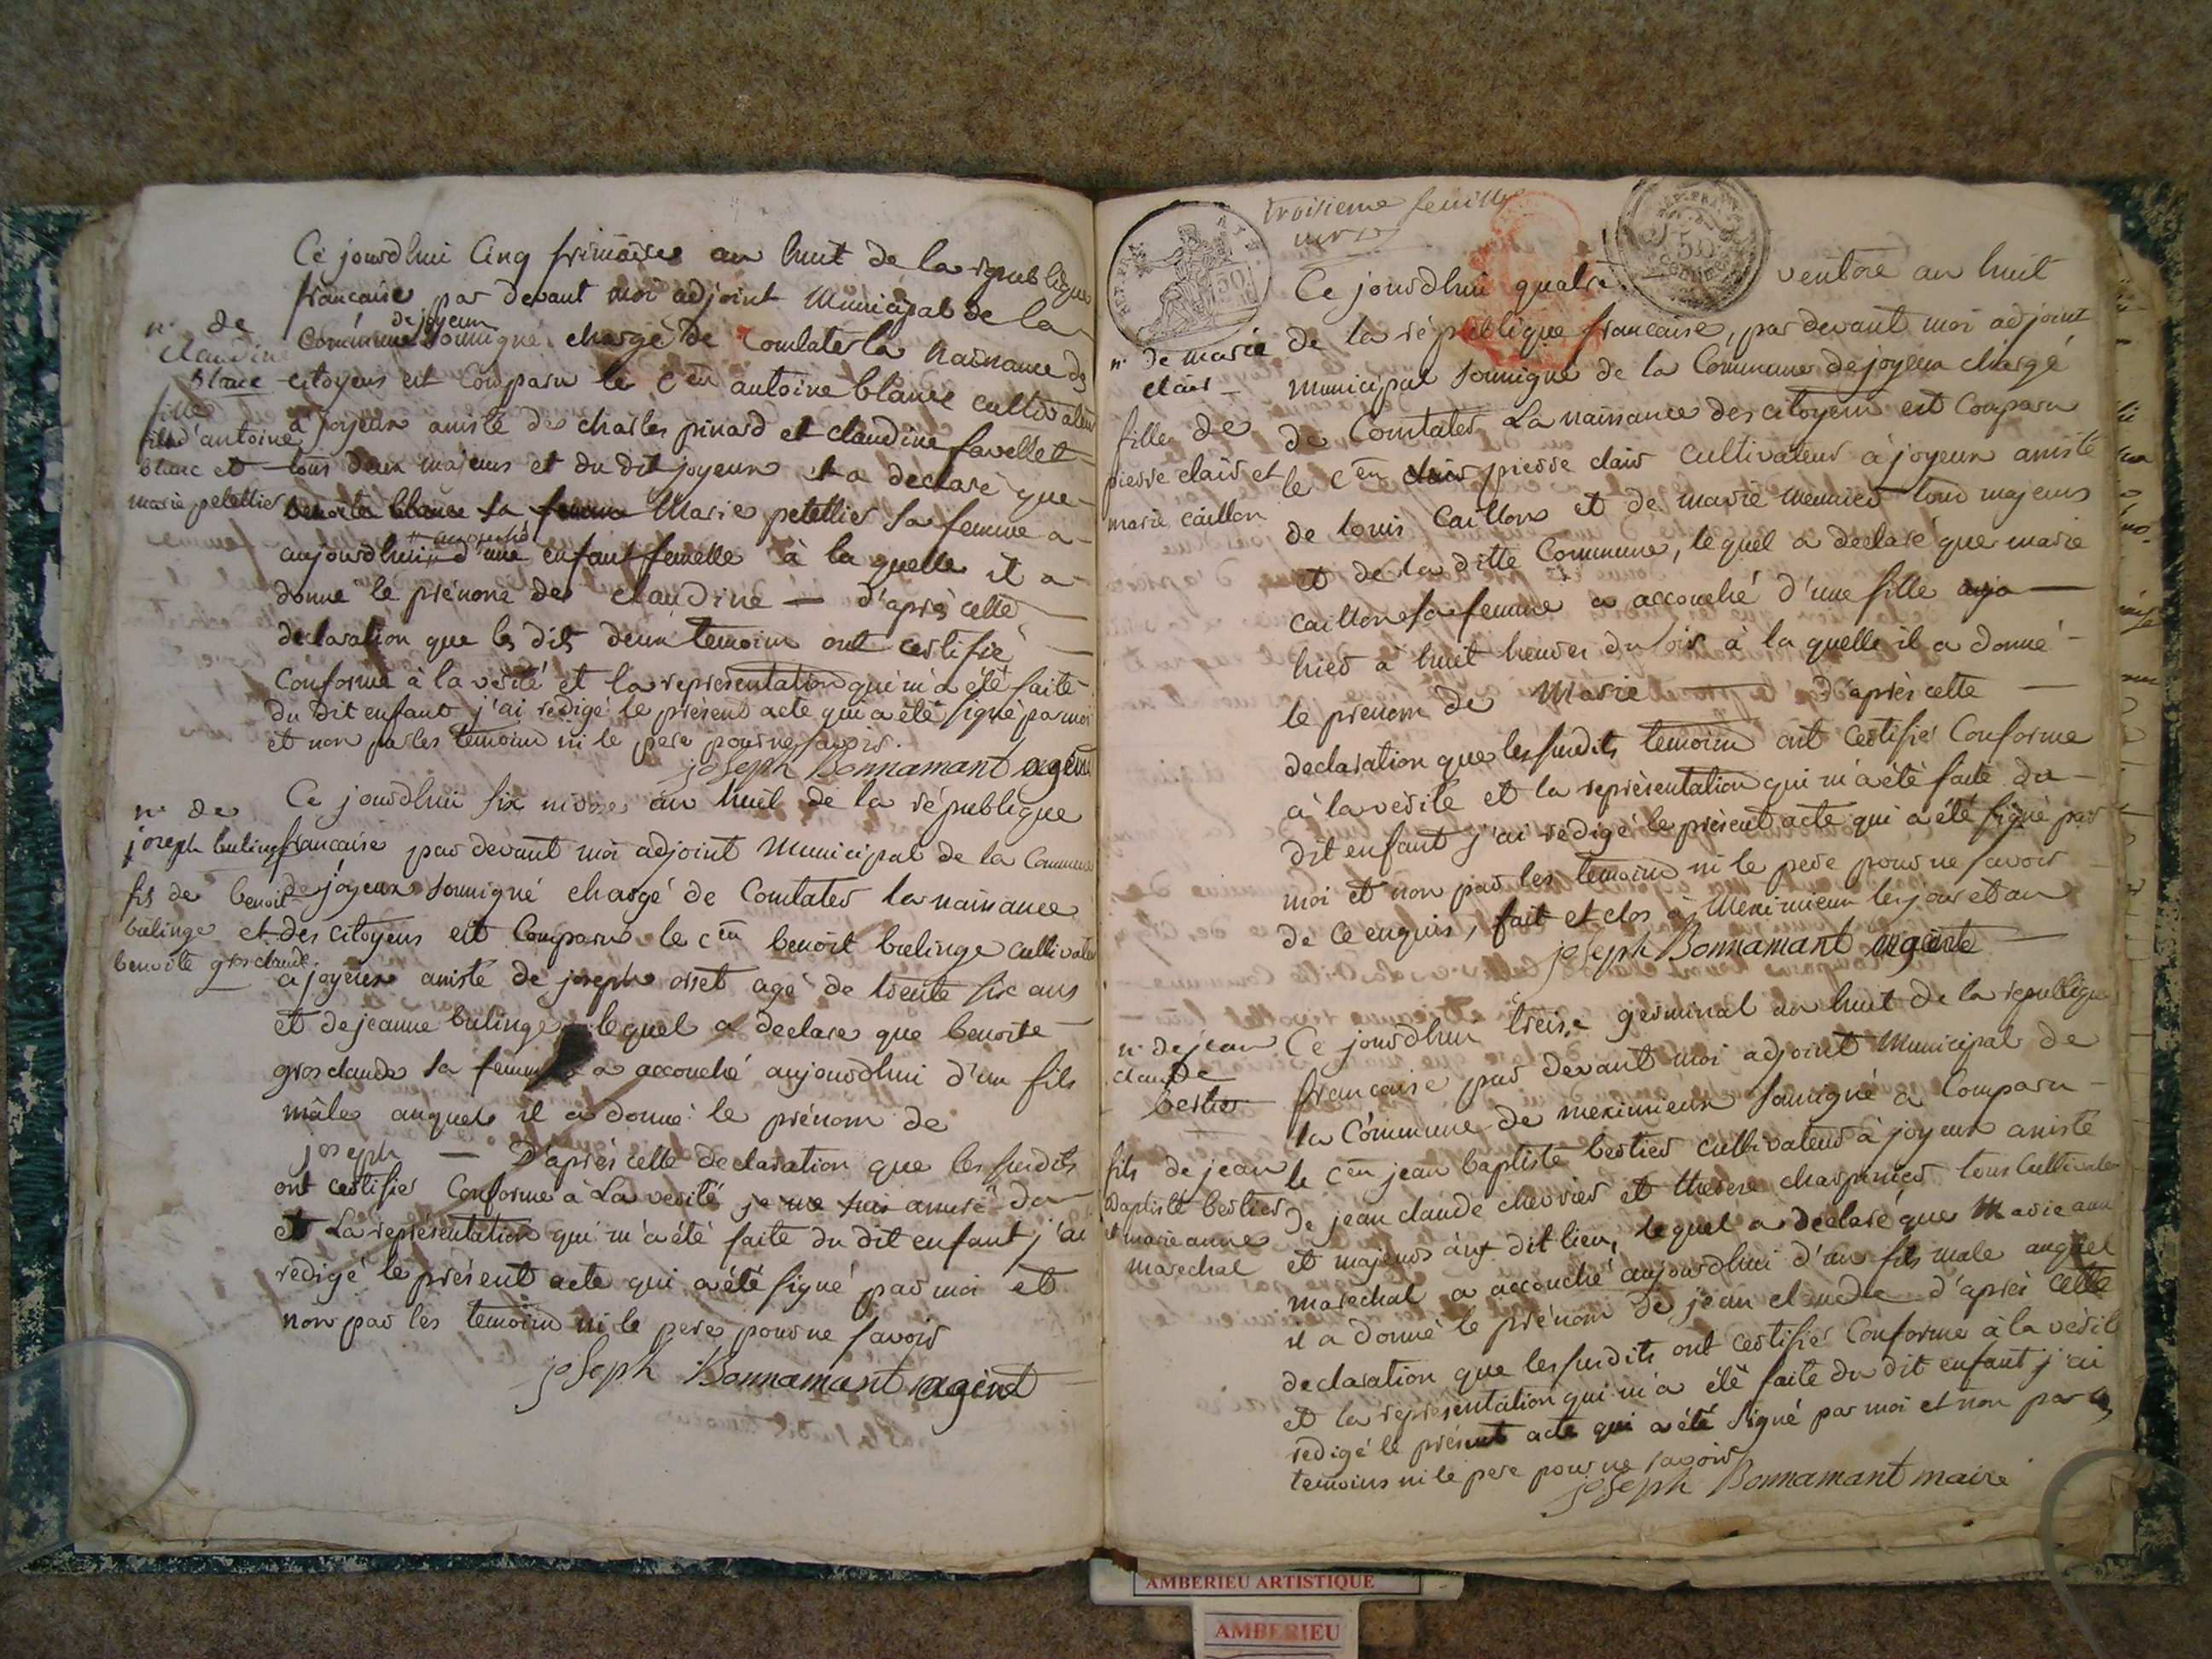 Ce jourdhui Cinq frimaire an huit de la republique
francaise par devant moi adjoint Municipal de la
de joyeux
Commune soussigné chargé de Constater la naissance des
citoyens est Comparu le Cen antoine blanc cultivateur
a joyeux assisté de charles pinard et claudine favellet
tous deux majeurs et du dit joyeux il a declaré que
benoite blanc sa femme Marie petellier sa femme a
accouché
aujourdhui d'une enfant femelle à la quelle il a
donne le prénom de claudine — d'après cette
declaration que les dits deux temoins ont certifié
Conforme à la verité et la representation qui m'a été faite
du dit enfant j'ai redigé le présent acte qui a été signé par moi
et non par les temoins ni le pere pour ne savoir.
joseph Bonnamant agent
n. de
claudine
blanc
fille
d'antoine
blanc et
marie petellier
Ce jourdhui six nivose an huit de la république
francaise par devant moi adjoint Municipal de la Commune
de joyeux soussigné chargé de Constater la naissance
des citoyens est Comparu le cen benoit bulinge cultivateur
a joyeux assisté de joseph orset agé de trente six ans
et de jeanne bulinge lequel a declare que benoite
grosclaude sa femme a accouché aujourdhui d'un fils
mâle auquel il a donné le prénom de
joseph — D'après cette declaration que les susdits
ont certifier Conforme à La verité je me suis assuré du
et La représentation qui m'a été faite du dit enfant j'ai
redigé le présent acte qui a été signé par moi et
non par les temoins ni le pere pour ne savoir
joseph Bonnamant agent
n. de
joseph bulinge
fils de benoit
bulinge et
benoite grosclaude.
troisieme feuille
REP. FRA.
50
Ce jourdhui quatre ventose an huit
de la république francaise, par devant moi adjoint
municipal soussigné de la Commune de joyeux chargé
de Constater La naissance des citoyens est Comparu
le Cen clair pierre clair cultivateur à joyeux assisté
de louis Caillon et de marie meunier tous majeurs
et de la ditte Commune, lequel a declaré que marie
caillon sa femme a accouché d'une fille aujo —
hier à huit heures du soir à la quelle il a donné
le prenom de Marie — D'après cette —
declaration que les susdits temoins ont certifier Conforme
à la vérité et la représentation qui m'a été faite du
dit enfant j'ai rédigé le présent acte qui a été signé par
moi et non par les temoins ni le pere pour ne savoir
de ce enquis, fait et clos à Meximieux les jour et an
joseph Bonnamant agente
n. de marie
clair —
fille de
pierre clair et
marie caillon
Ce jourdhui treise germinal an huit de la republique
francaise par devant moi adjoint Municipal de
la Commune de meximieux soussigné a Comparu
le cen jean baptiste bertier cultivateur à joyeux assisté
De jean claude chevrier et therese charpinier tous Cultivateurs
et majeurs au dit lieu, lequel a declaré que Marie anne
marechal a accouché aujourdhui d'un fils male auquel
il a donné le prénom de jean claude d'après cette
declaration que les susdits ont certifier Conforme à la vérité
et la représentation qui m'a été faite du dit enfant j'ai
redigé le présent acte qui a été signé par moi et non par les
temoins ni le pere pour ne savoir
joseph Bonnamant maire
n. de jean
claude
bertier
fils de jean
Baptiste bertier
et marie anne
marechal
AMBERIEU ARTISTIQUE
AMBERIEU